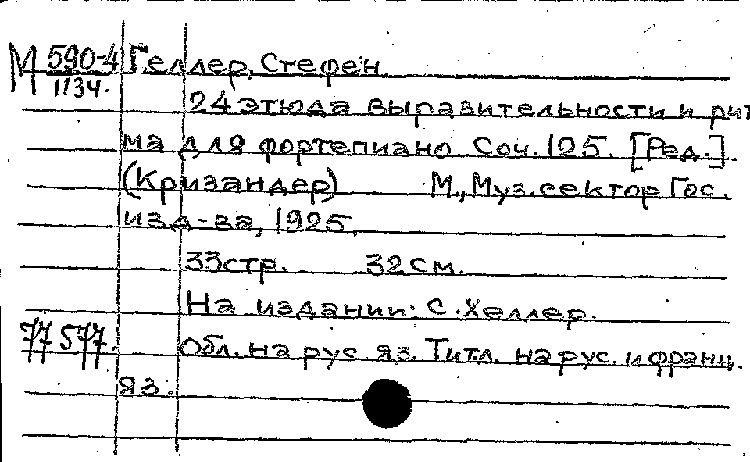 М 590-4 Геллер, Стефен
1134.
24 этюда выразительности и рит
ма для фортепиано Соч. 125. [Ред.].
(Кризандер) М., Муз. сектор Гос.
изд-ва, 1925.
33 стр. 32 см.
На издании: С. Хеллер.
77577. Обл. на рус яз. Титл. на рус. и франц.
яз.